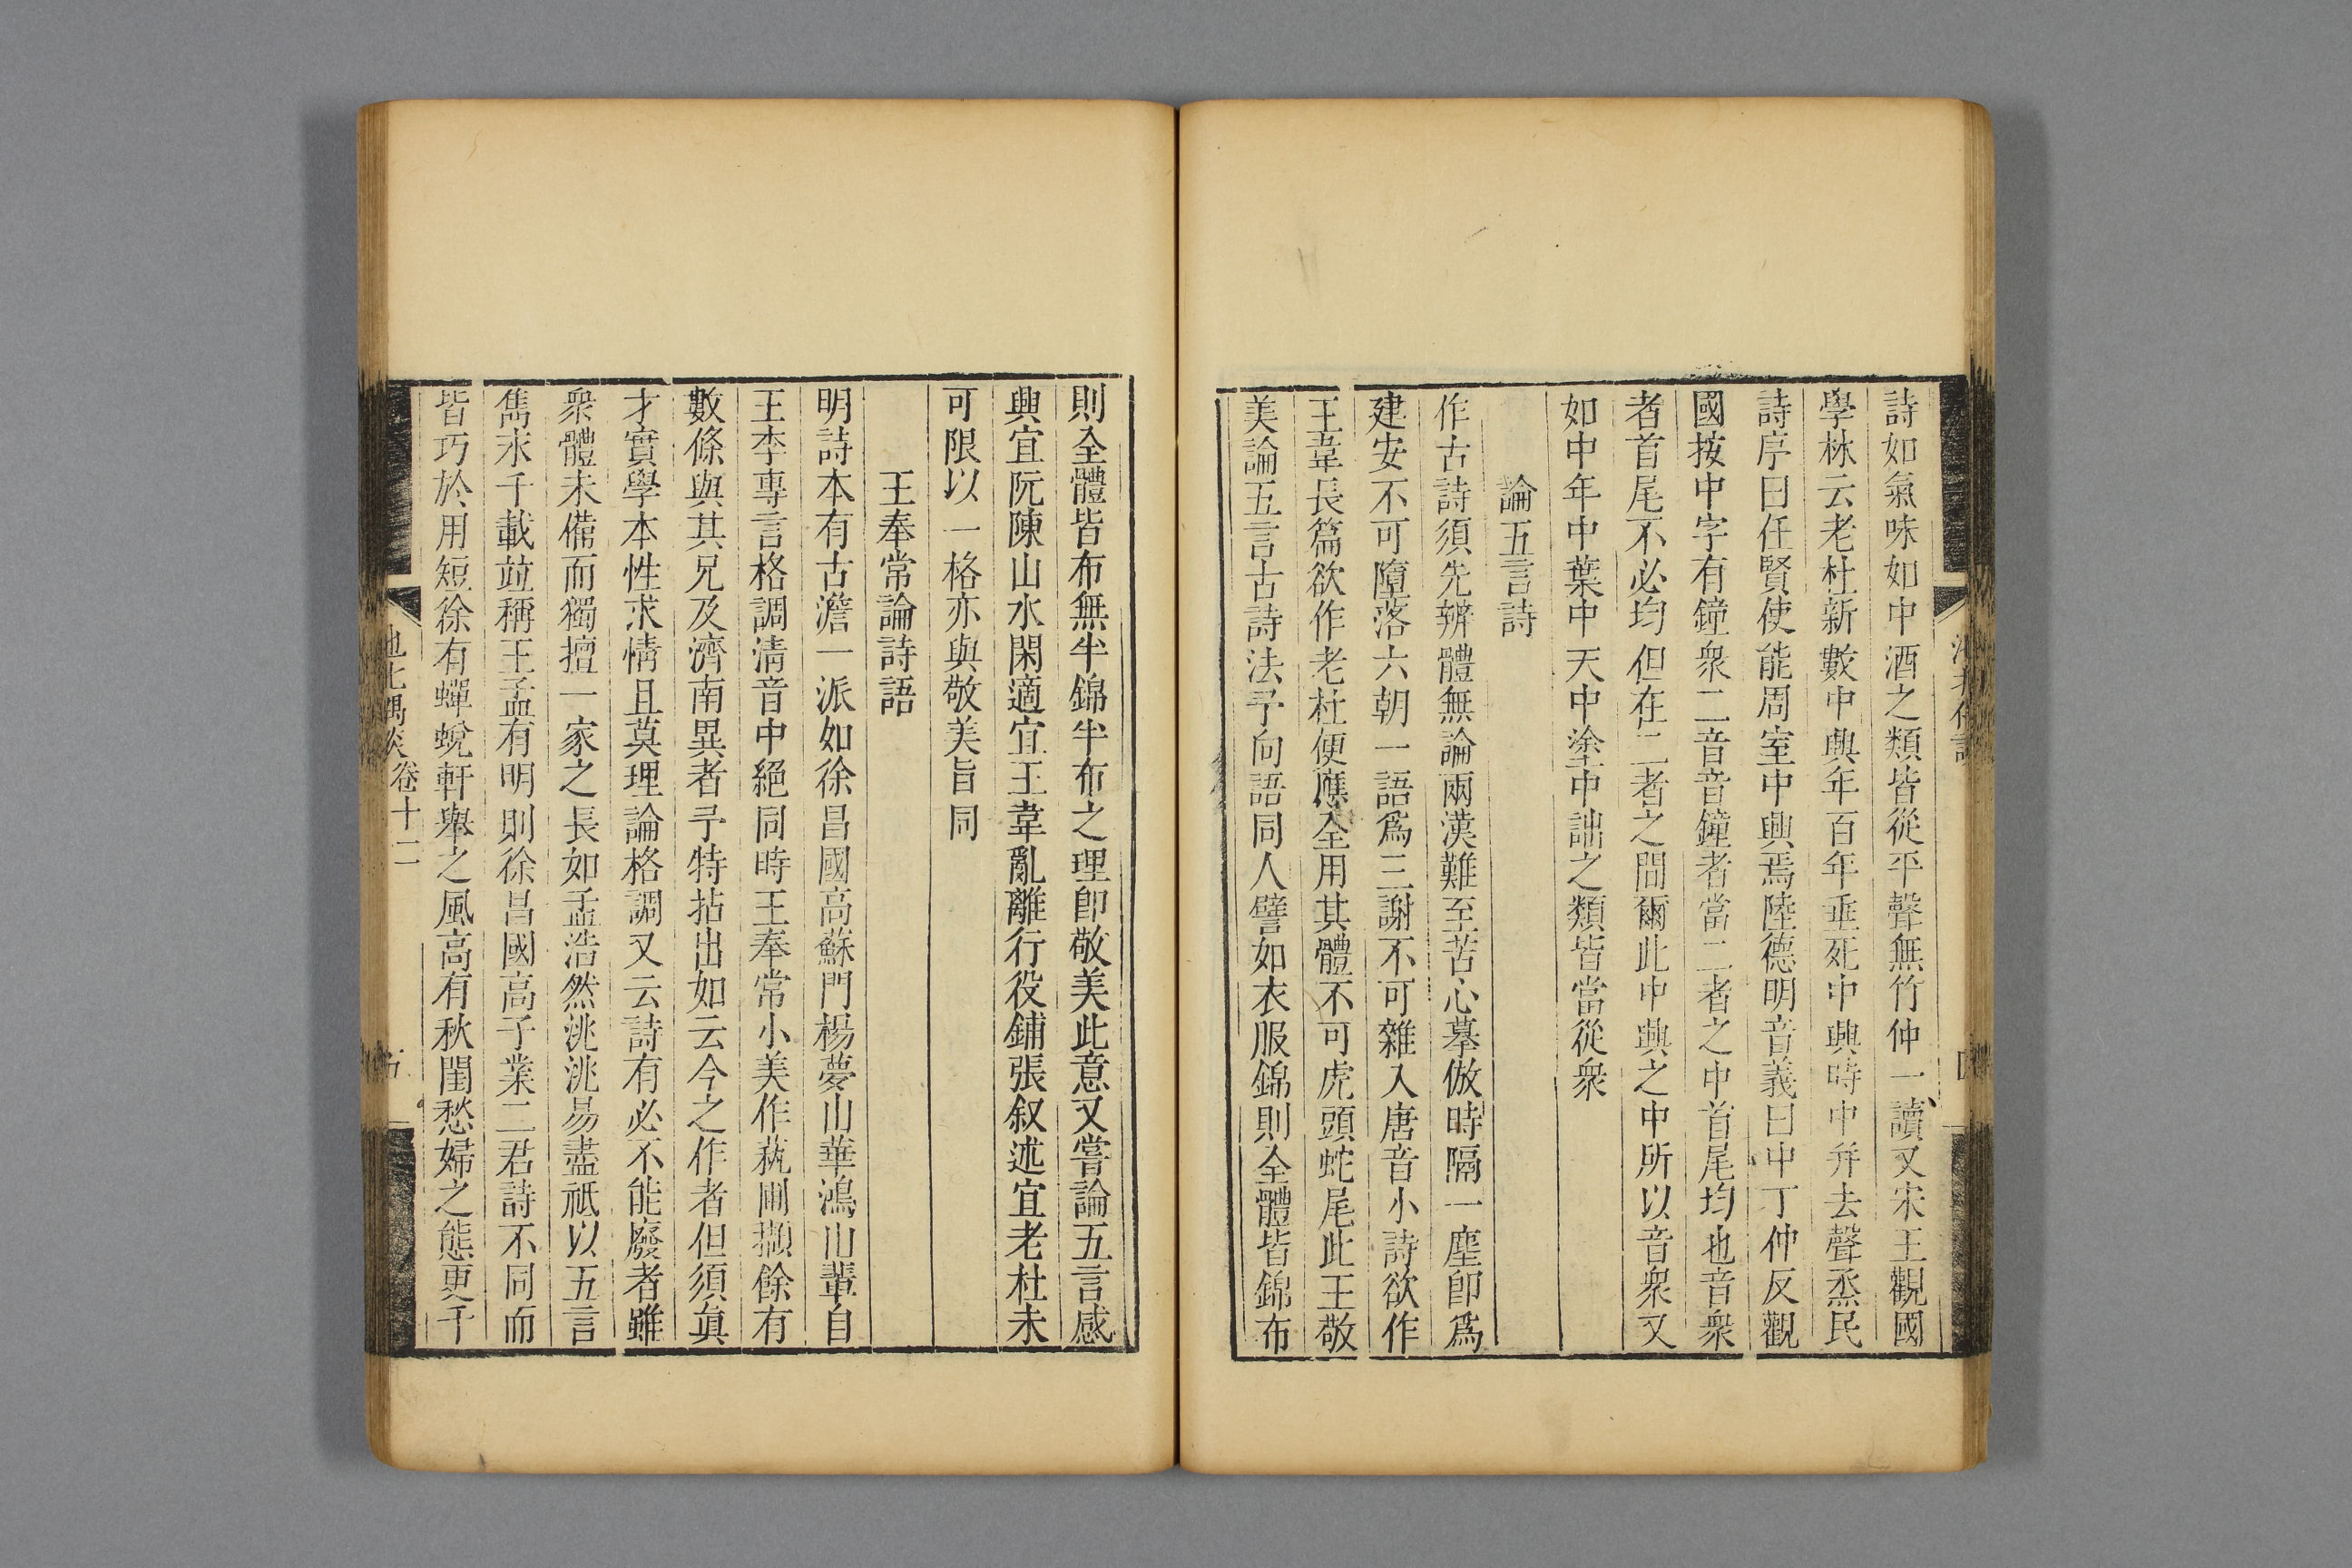 詩如氣味如中酒之類皆從平聲無竹仲一讀又宋王觀國
學林云老杜新數中興年百年垂死中興時中并去聲烝民
詩序曰任賢使能周室中興焉陸德明音義曰中丁仲反觀
國按中字有鐘衆二音音鐘者當二者之中首尾均也音衆
者首尾不必均但在二者之間爾此中興之中所以音衆又
如中年中葉中天中塗中詘之類皆當從衆
論五言詩
作古詩須先辨體無論兩漢難至苦心摹倣時隔一塵卽爲
建安不可墮落六朝一語爲三謝不可雜入唐音小詩欲作
王韋長篇欲作老杜便應全用其體不可虎頭蛇尾此王敬
美論五言古詩法予向語同人譬如衣服錦則全體皆錦布
則全體皆布無半錦半布之理卽敬美此意又嘗論五言感
興宜阮陳山水閑適宜王韋亂離行役鋪張叙述宜老杜未
可限以一格亦與敬美旨同
王奉常論詩語
明詩本有古澹一派如徐昌國高蘇門楊夢山華鴻山輩自
王李專言格調淸音中絕同時王奉常小美作蓺圃擷餘有
數條與其兄及濟南異者予特拈出如云今之作者但須眞
才實學本性求情且莫理論格調又云詩有必不能廢者雖
衆體未備而獨擅一家之長如孟浩然洮洮易盡祗以五言
雋永千載竝稱王孟有明則徐昌國高子業二君詩不同而
皆巧於用短徐有蟬蛻軒舉之風高有秋閨愁婦之態更千
池北偶談 卷十二